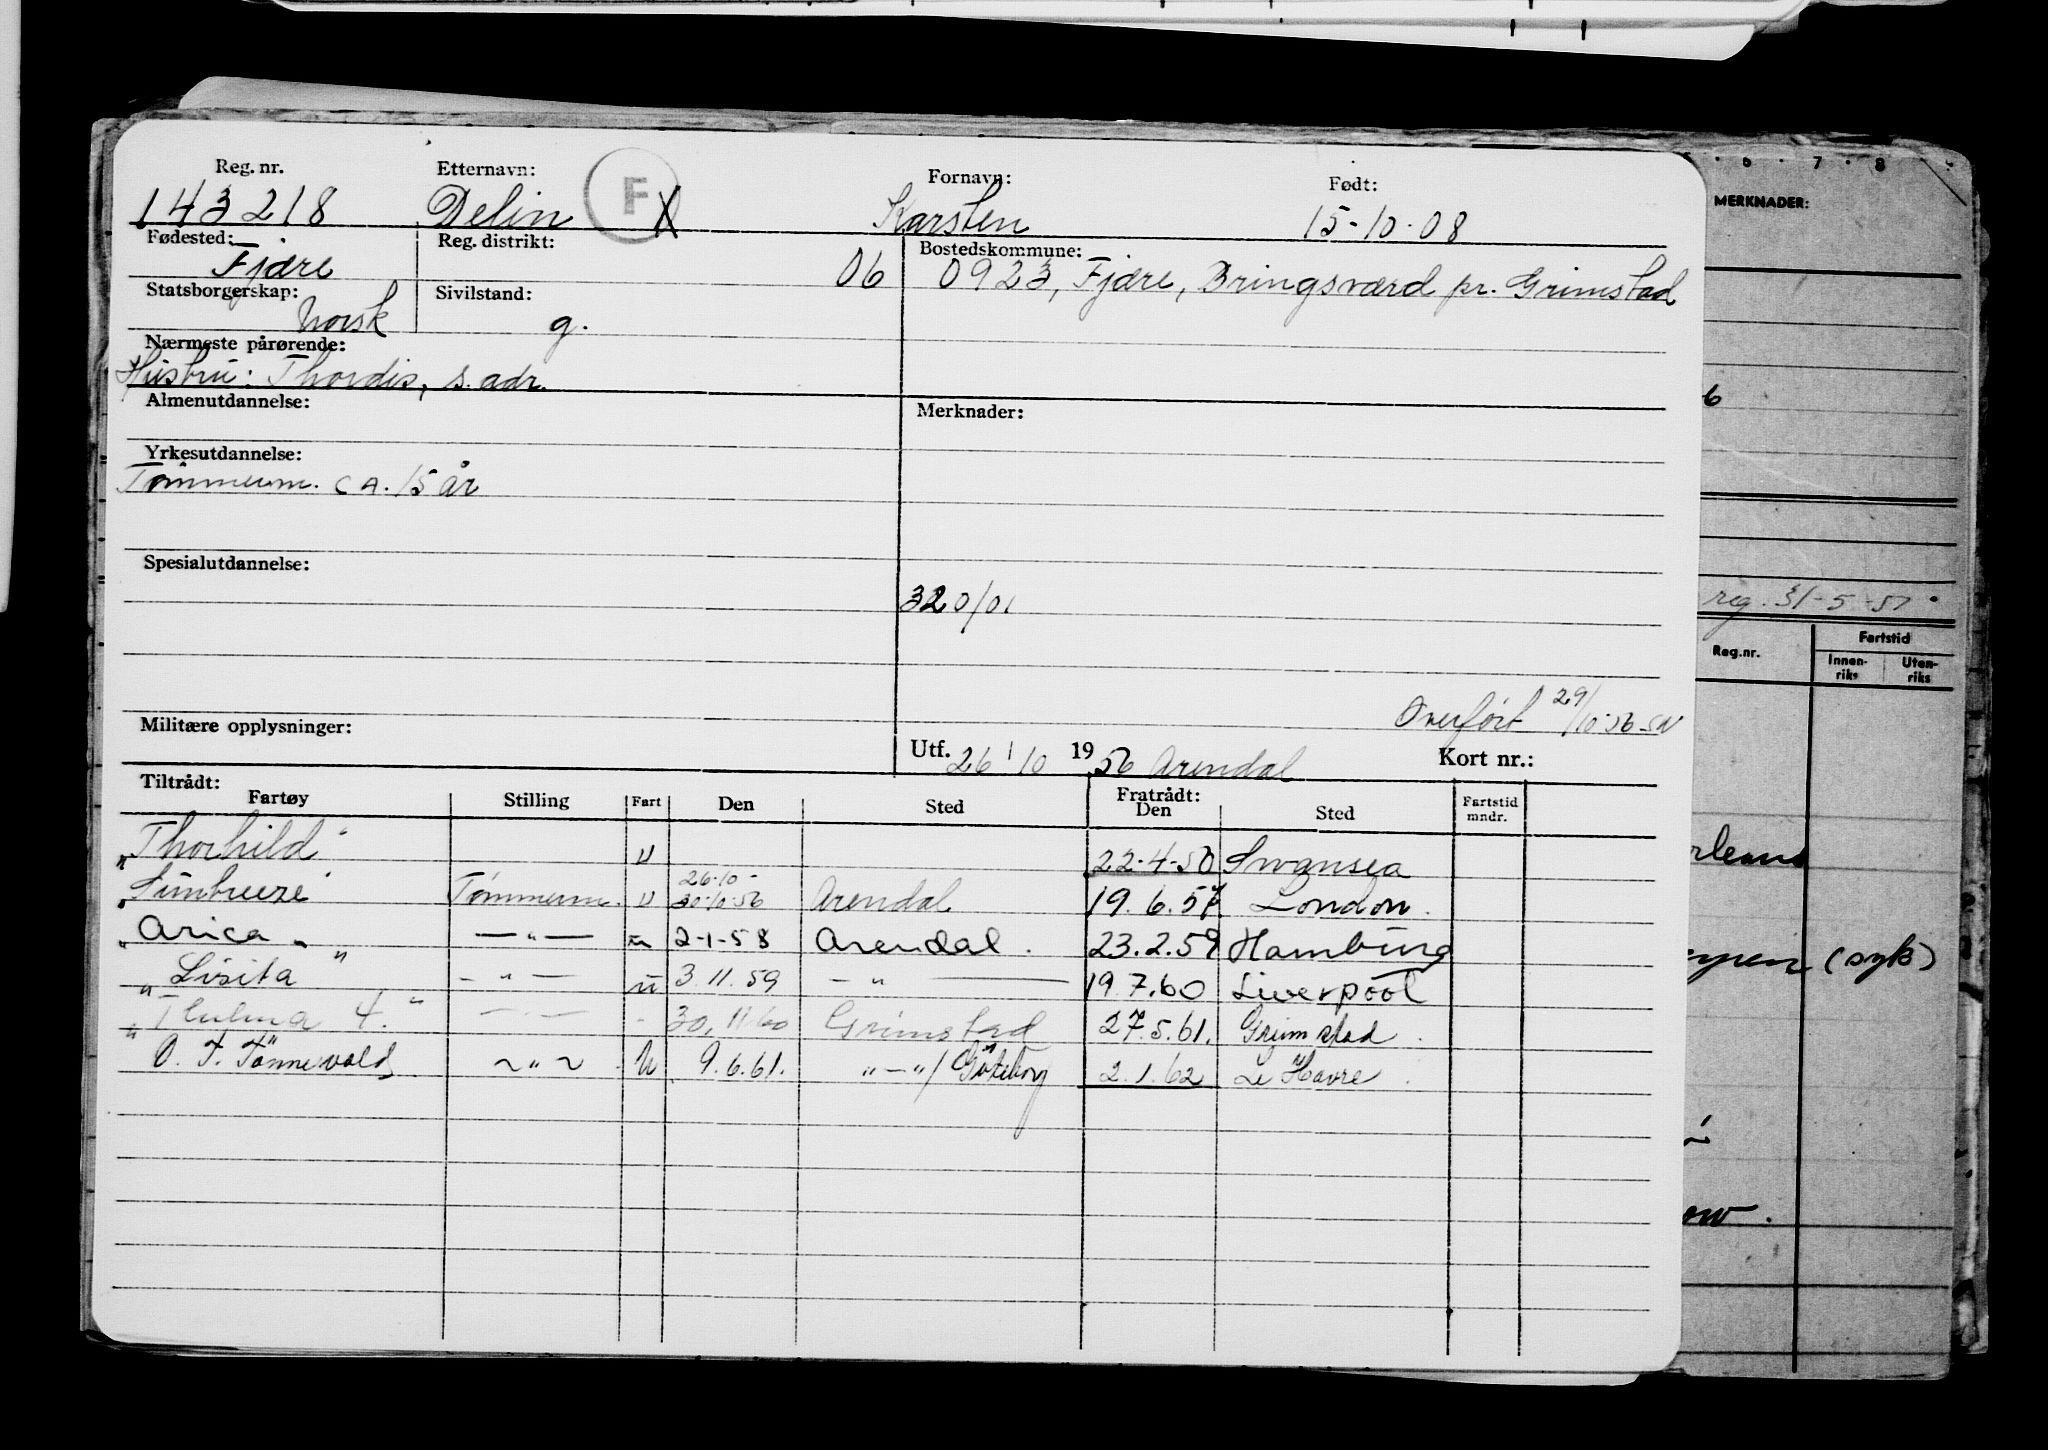 Reg. nr. Etternavn: F Fornavn: Født:
143218 Delin X Karsten 15-10-08
Fødested: Reg. distrikt: Bostedskommune:
Fjære 06 0923, Fjære, Bringsværd pr. Grimstad
Statsborgerskap: Sivilstand:
Norsk g.
Nærmeste pårørende:
Hustru: Thordis, s. adr.
Almenutdannelse: Merknader:
Yrkesutdannelse:
Tømmerm. CA. 15 år
Spesialutdannelse:
320/01
Overført 29/10-56
Militære opplysninger:
Utf. 26/10 1956 Arendal Kort nr.:
Tiltrådt: Fratrådt:
Fartøy Stilling Fart Den Sted Den Sted Fartstid mndr.
"Thorhild" U 22-4-50 Swansea
26.10-
Tømmerm. U 30.10.56 Arendal 19.6.57 London.
"Arica" —"— U 2-1-58 Arendal. 23.2.59 Hamburg
"Lisita" —"— U 3.11.59 —"— 19.7.60 Liverpool
30.11.60 Grimstad 27.5.61. Grimstad.
O. T. Tønnevold ~"~ U 9.6.61. "—"/Göteborg 2.1.62 Le Havre.
6 7 8
MERKNADER:
6
reg. 31-5-51
Reg.nr. Fartstid
Innenriks Utenriks
(syk)